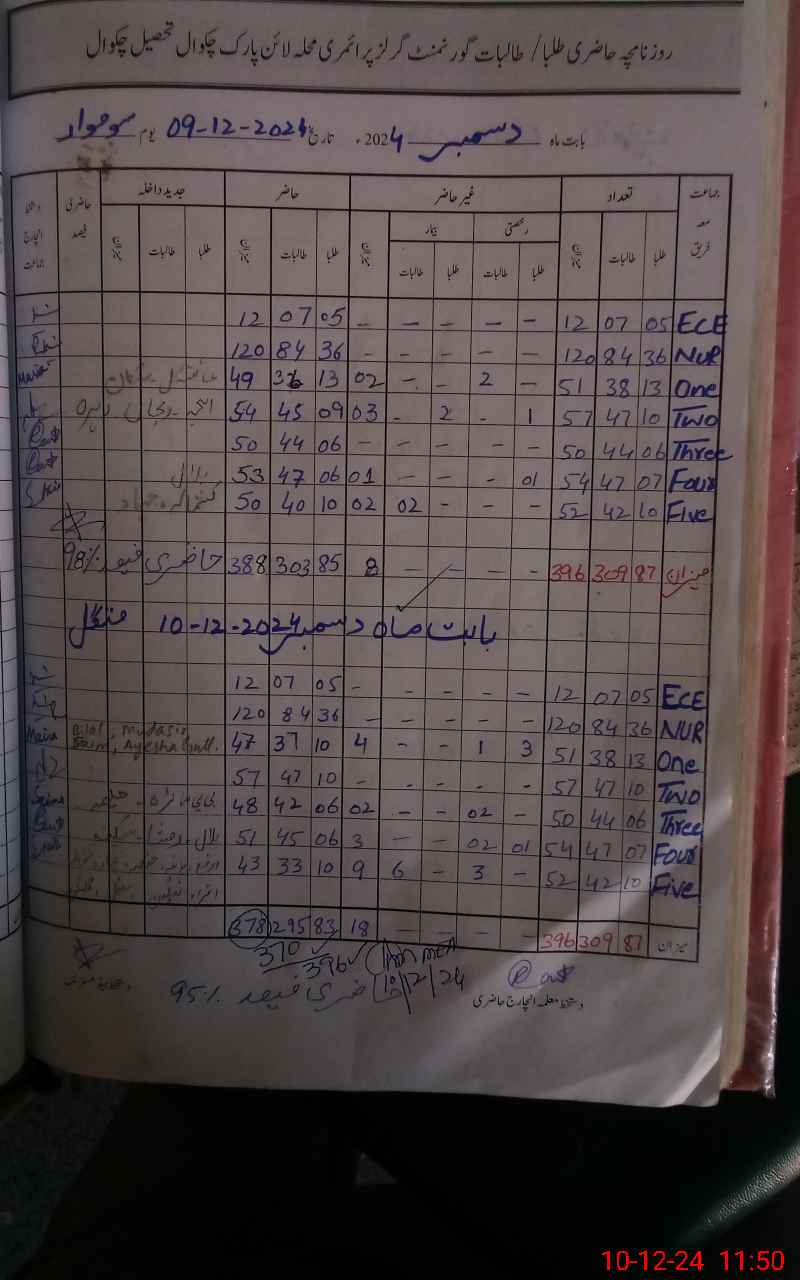 روزنامچہ حاضری طلبا / طالبات گورنمنٹ گرلز پرائمری محلہ لائن پارک چکوال تحصیل چکوال
بابت ماہ دسمبر 2024ء تاریخ 09-12-2024 یوم سوموار
جماعت معہ فریق تعداد غیر حاضر حاضر جدید داخلہ حاضری فیصد دستخط انچارج جماعت
طلبا طالبات میزان رخصتی بیمار میزان طلبا طالبات میزان طلبا طالبات میزان
طلبا طالبات طلبا طالبات
ECE 05 07 12 - - - - - 05 07 12
NUR 36 84 120 - - - - - 36 84 120
One 13 38 51 - 2 - - 02 13 36 49
Two 10 47 57 1 - 2 - 03 09 45 54
Three 06 44 50 - - - - - 06 44 50
Four 07 47 54 01 - - - 01 06 47 53 بلال
Five 10 42 52 - - - 02 02 10 40 50
میزان 87 309 396 - - - - 8 85 303 388 حاضری فیصد 98%
بابت ماہ دسمبر 10-12-2024 منگل
ECE 05 07 12 - - - - - 05 07 12
NUR 36 84 120 - - - - - 36 84 120
One 13 38 51 3 1 - - 4 10 37 47 Bilal, Mudasir, Saim, Ayesha Gull. Maira
Two 10 47 57 - - - - - 10 47 57
Three 06 44 50 - 02 - - 02 06 42 48
Four 07 47 54 01 02 - - 3 06 45 51
Five 10 42 52 - 3 - 6 9 10 33 43
میزان 87 309 396 - - - - 18 83 295 378
370
396
10/12/24
حاضری فیصد 95%
دستخط معلمہ انچارج حاضری
10-12-24 11:50